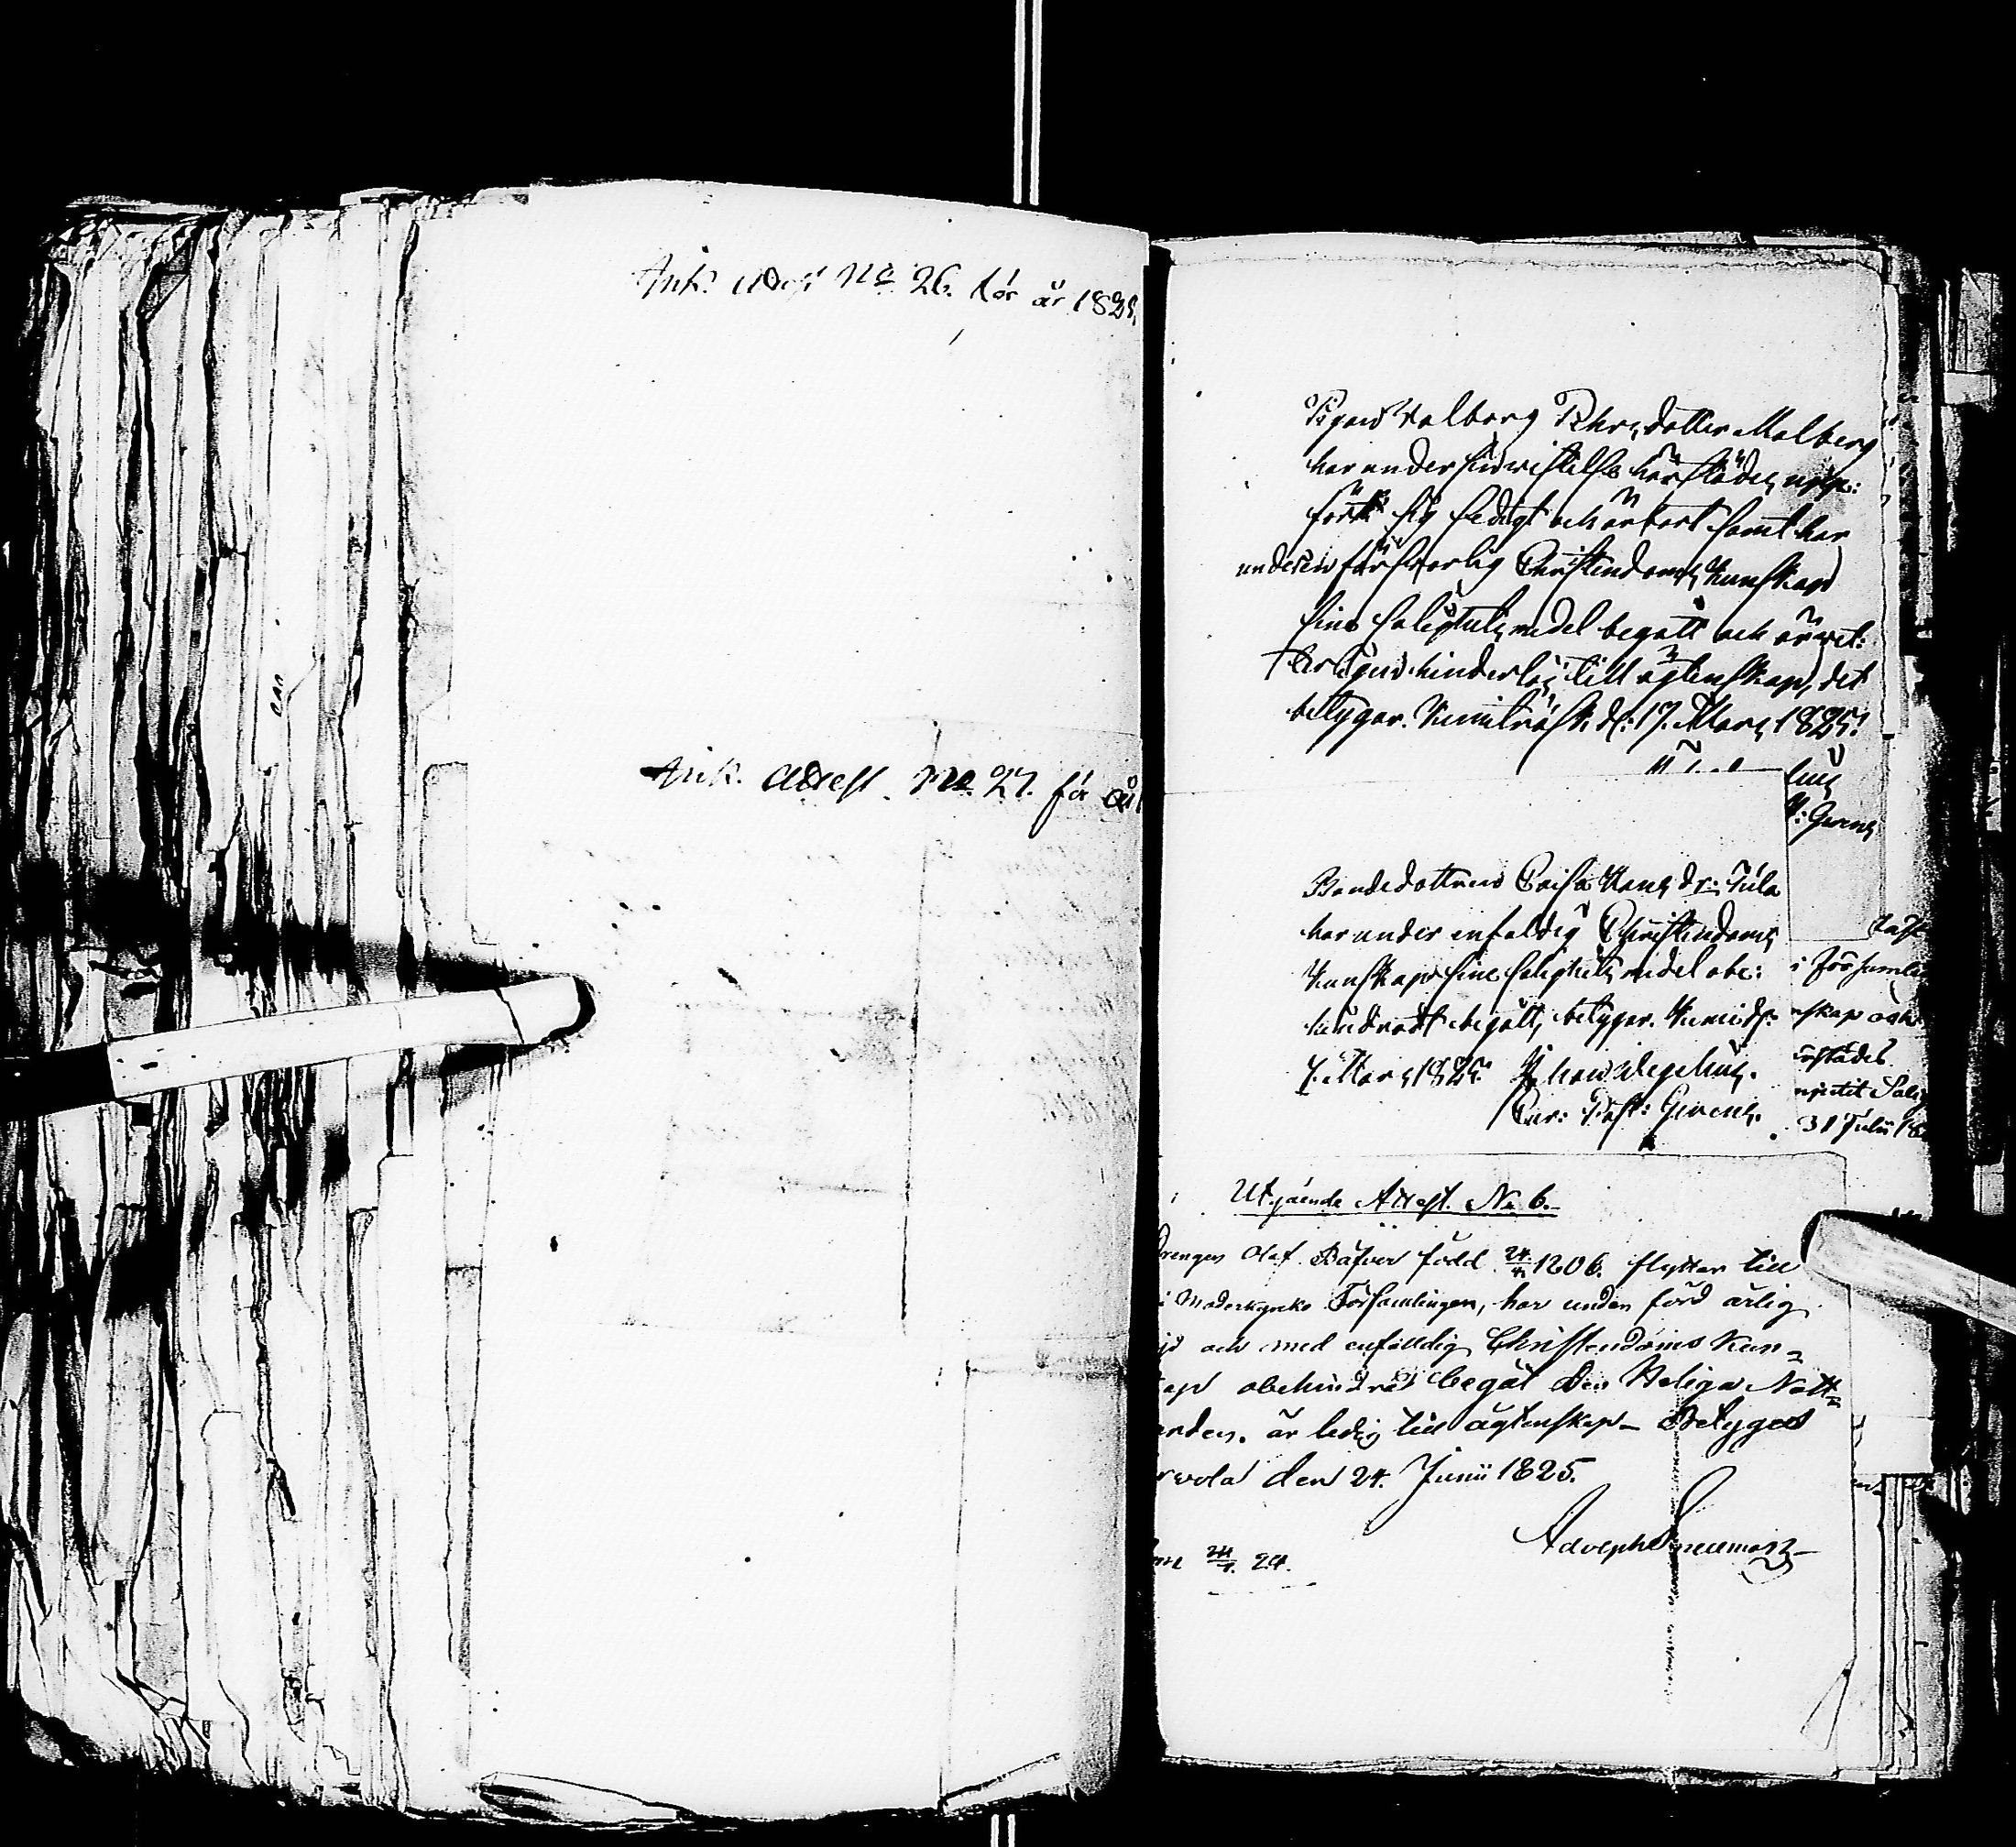 Ank. Attest No 26. för år 1825.
Ank. Attest. No 27. för år
Pigan Valborg Pehrsdotter Malberg
har under sin vistelse härstädes upp:
fört sig sedigt och ärbart samt har
under en försvarlig Christendoms Kunskap
sine salighets medel begått och är vet:
terligen hinderlös till ägtenskap, det
betygar. Kemiträsk d: 17. Mars 1825.
lius
V: Gerens
Bondedottren Caisa Hans dr: Jula
har under enfaldig Christendoms
Kunskap sine salighets medel obe:
hindradt begått, betygar. Kemi d:
7. Mars 1825. Johan Wegelius.
Cur: Past: Gerens.
i Församlin
nskap och
ärstädes
njutit Salig
31 Julii 18
Utgående Attest. No 6.
Drengen Olof Bäfver född 24/4 1806. flyttar till
i Moderkyrko Församlingen, har under förd ärlig
och med enfaldig Christendoms Kun=
kap obehindrat begåt den Heliga Natt=
arden. är ledig till ägtenskap - Betygas
rvola den 24. Junii 1825.
Adolph Snellman
24.